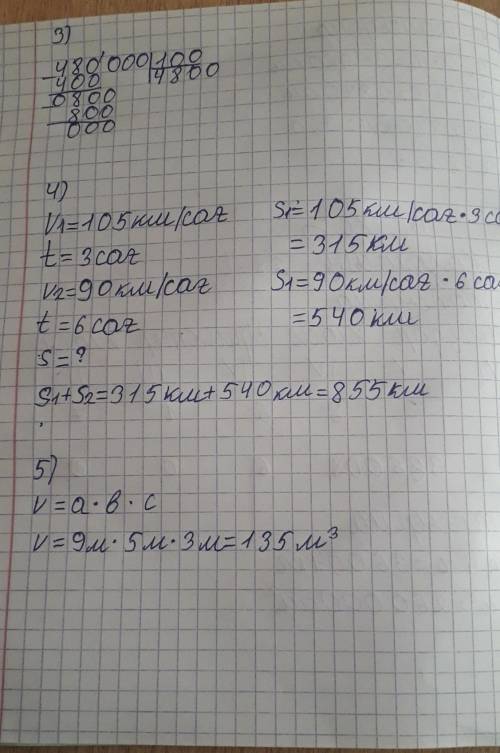 3)
480'000 | 100
400 4800
0800
800
000
4)
V1=105км/сағ S1=105км/сағ·3са
t=3сағ =315км
V2=90км/сағ S1=90км/сағ·6са
t=6сағ =540км
S=?
S1+S2=315км+540км=855км
5)
V=a·в·c
V=9м·5м·3м=135м³